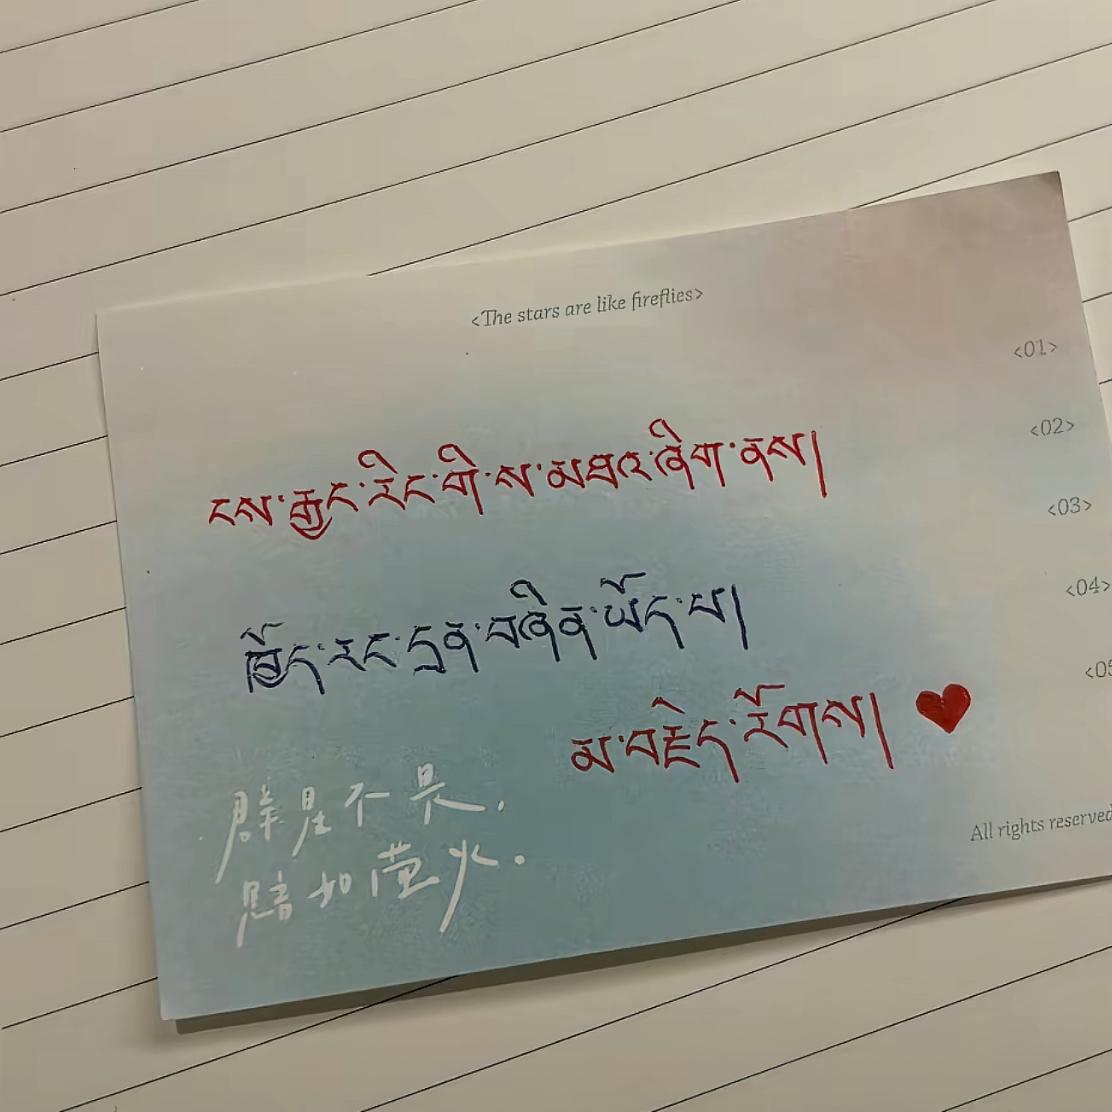 <The stars are like fireflies>
<01>
<02>
<03>
<04>
<05
ངས་རྒྱང་རིང་གི་ས་མཐའ་ཞིག་ནས།
ཁྱོད་རང་དྲན་བཞིན་ཡོད་པ།
མ་བརྗེད་རོགས།
群星不是，
暗如萤火。
All rights reserved